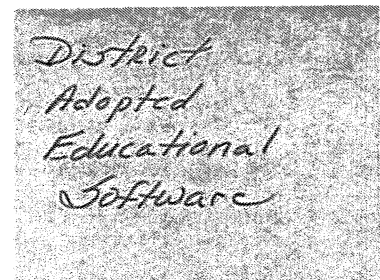 District
Adopted
Educational
Software